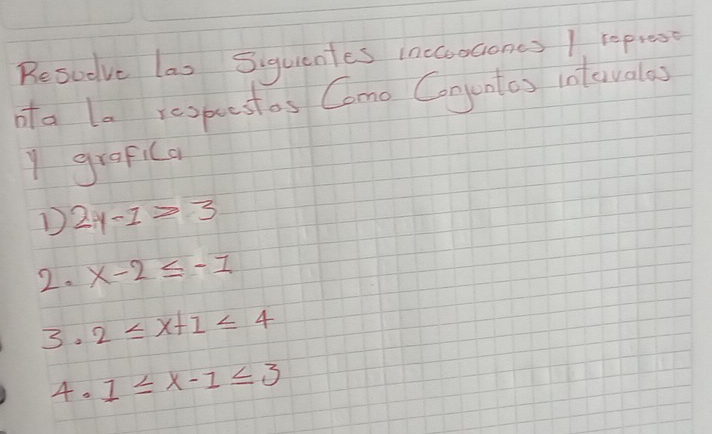 Resuelve las Siguientes inecuaciones y represe
nta la respuestas Como Conjuntos intervalos
y grafica
1) 2y-1 ≥ 3
2. x-2 ≤ -1
3. 2 ≤ x+1 ≤ 4
4. 1 ≤ x-1 ≤ 3